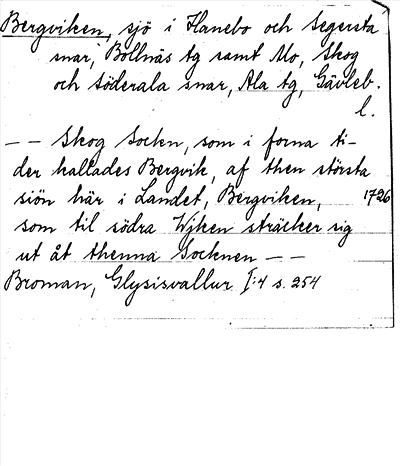 Bergviken, sjö i Hanebo och Segersta
snar, Bollnäs tg samt Mo, Skog
och Söderala snar, Ala tg, Gävleb.
l.
– – Skog Socken, som i forna ti-
der kallades Bergvik, af then största
siön här i Landet, Bergviken, 1726
som til södra Wjken sträcker sig
ut åt thenna Socknen – –
Broman, Glysisvallur I:4 s. 254